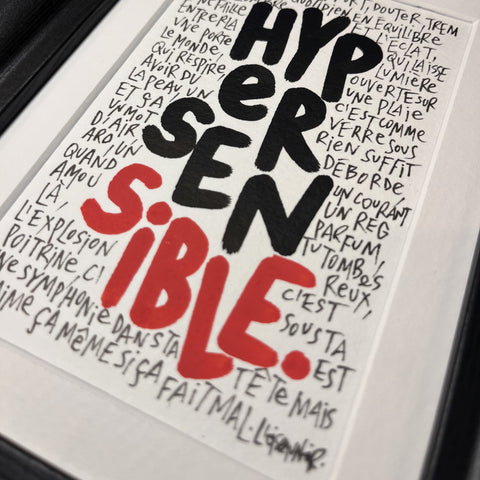 HYP
eR
SEN
SiBLE.
DOUTER, TREM
QUOTIDIEN EN EQUILIBRE
NE FAILLE
ENTRE LA ET L'ÉCLAT,
UNE PORTE QUI LAISSE
LE MONDE, LUMIÈRE
QUI RESPIRE OUVERTE SUR
AVOIR DU UNE PLAIE
LA PEAU, UN C'EST COMME
ET ÇA VERRE SOUS
UN MOT RIEN SUFFIT
D'AIR DÉBORDE
ARD UN UN COURANT
QUAND UN REG
AMOU PARFUM,
LÀ, TU TOMBES
L'EXPLOSION REUX,
POITRINE, C' C'EST
NE SYMPHONIE DANS TA SOUS TA
AIME ÇA MÊME SI ÇA TÊTE MAIS EST
FAIT MAL.